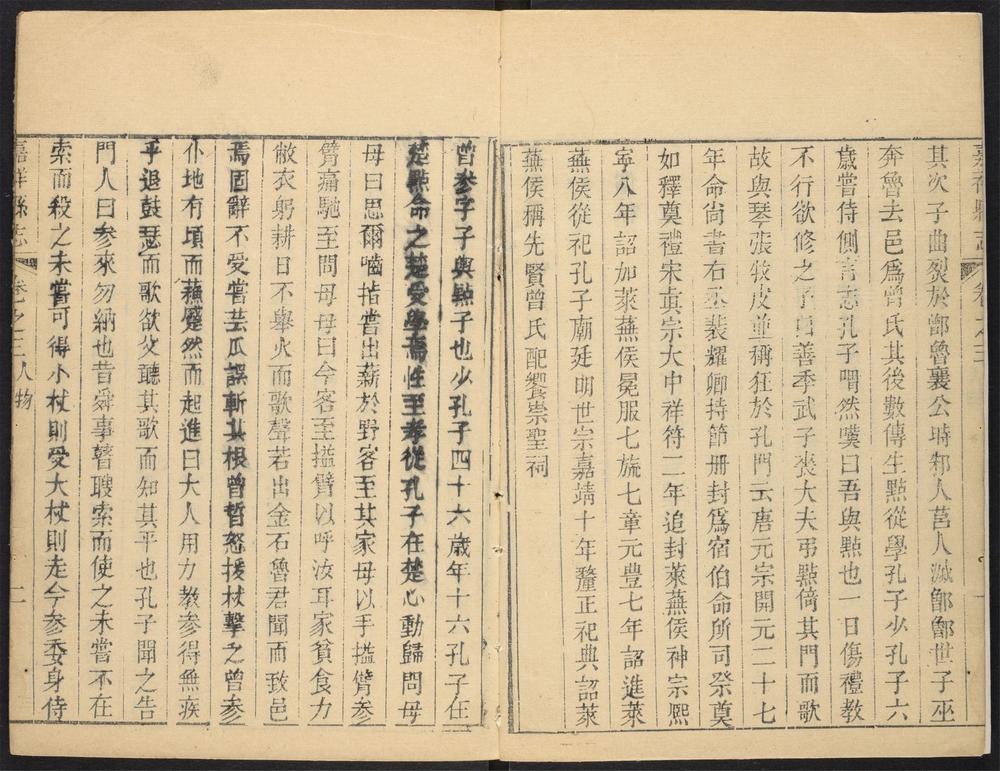 嘉祥縣志 卷之三
其次子曲裂於鄫魯襄公時邾人莒人滅鄫鄫世子巫
奔魯去邑爲曾氏其後數傳生點從學孔子少孔子六
歲嘗侍側言志孔子喟然嘆曰吾與點也一日傷禮教
不行欲修之子曰善季武子喪大夫弔點倚其門而歌
故與琴張牧皮並稱狂於孔門云唐元宗開元二十七
年命尙書右丞裴耀卿持節册封爲宿伯命所司祭奠
如釋奠禮宋眞宗大中祥符二年追封萊蕪侯神宗熙
寧八年詔加萊蕪侯冕服七旒七章元豐七年詔進萊
蕪侯從祀孔子廟廷明世宗嘉靖十年釐正祀典詔萊
蕪侯稱先賢曾氏配饗崇聖祠
曾參字子輿點子也少孔子四十六歲年十六孔子在
楚點命之楚受學焉性至孝從孔子在楚心動歸問母
母曰思爾嚙指嘗出薪於野客至其家母以手搤臂參
臂痛馳至問母母曰今客至搤臂以呼汝耳家貧食力
敝衣躬耕日不舉火而歌聲若出金石魯君聞而致邑
焉固辭不受嘗芸瓜誤斬其根曾晳怒援杖擊之曾參
仆地有頃而蘇蹙然而起進曰大人用力教參得無疾
乎退鼓瑟而歌欲父聽其歌而知其平也孔子聞之告
門人曰參來勿納也昔舜事瞽瞍索而使之未嘗不在
索而殺之未嘗可得小杖則受大杖則走今參委身侍
嘉祥縣志 卷之三 人物 二